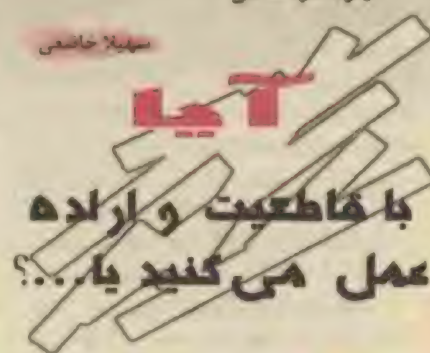 سهیلا خاضعی
آیا
با قاطعیت و اراده
عمل می کنید یا....؟